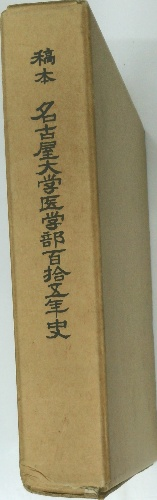 稿本
名古屋大学医学部百拾五年史